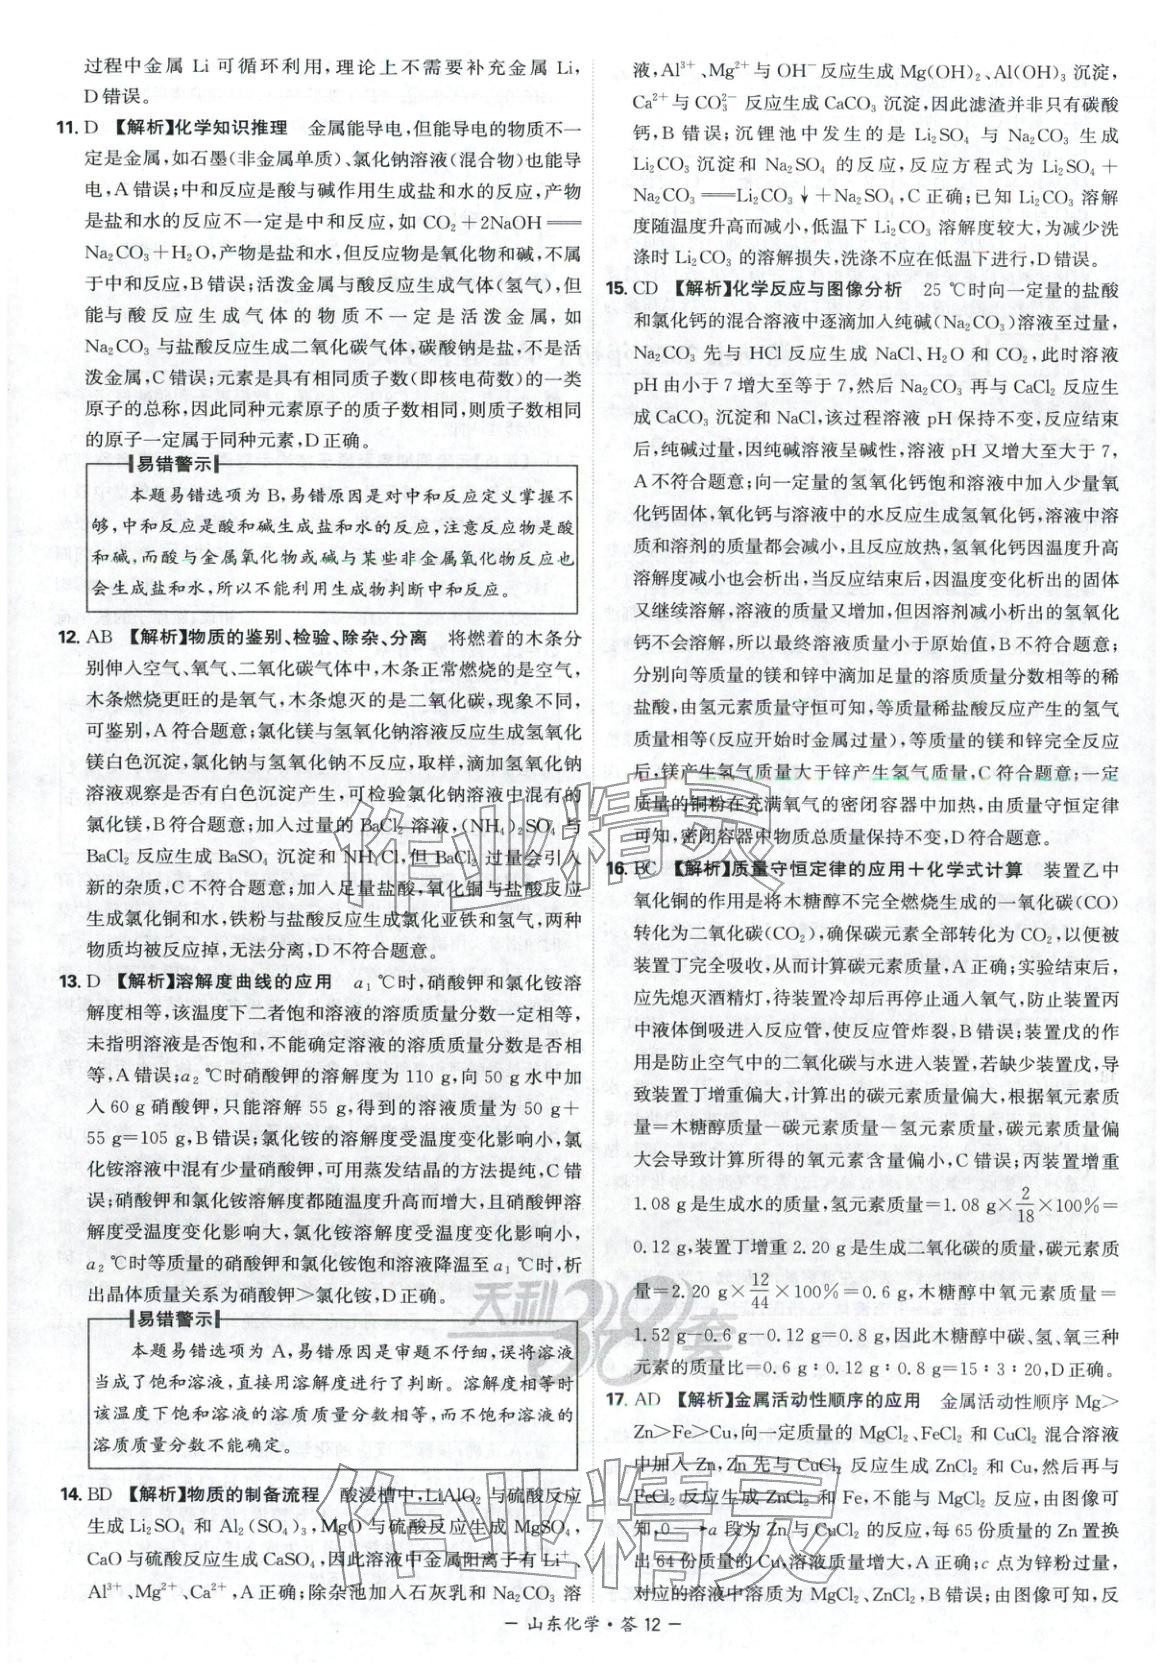 过程中金属 Li 可循环利用,理论上不需要补充金属 Li,
D 错误。
11. D 【解析】化学知识推理 金属能导电,但能导电的物质不一
定是金属,如石墨(非金属单质)、氯化钠溶液(混合物)也能导
电,A 错误;中和反应是酸与碱作用生成盐和水的反应,产物
是盐和水的反应不一定是中和反应,如 CO₂+2NaOH══
Na₂CO₃+H₂O,产物是盐和水,但反应物是氧化物和碱,不属
于中和反应,B 错误;活泼金属与酸反应生成气体(氢气),但
能与酸反应生成气体的物质不一定是活泼金属,如
Na₂CO₃ 与盐酸反应生成二氧化碳气体,碳酸钠是盐,不是活
泼金属,C 错误;元素是具有相同质子数(即核电荷数)的一类
原子的总称,因此同种元素原子的质子数相同,则质子数相同
的原子一定属于同种元素,D 正确。
易错警示
本题易错选项为 B,易错原因是对中和反应定义掌握不
够,中和反应是酸和碱生成盐和水的反应,注意反应物是酸
和碱,而酸与金属氧化物或碱与某些非金属氧化物反应也
会生成盐和水,所以不能利用生成物判断中和反应。
12. AB 【解析】物质的鉴别、检验、除杂、分离 将燃着的木条分
别伸入空气、氧气、二氧化碳气体中,木条正常燃烧的是空气,
木条燃烧更旺的是氧气,木条熄灭的是二氧化碳,现象不同,
可鉴别,A 符合题意;氯化镁与氢氧化钠溶液反应生成氢氧化
镁白色沉淀,氯化钠与氢氧化钠不反应,取样,滴加氢氧化钠
溶液观察是否有白色沉淀产生,可检验氯化钠溶液中混有的
氯化镁,B 符合题意;加入过量的 BaCl₂ 溶液,(NH₄)₂SO₄ 与
BaCl₂ 反应生成 BaSO₄ 沉淀和 NH₄Cl,但 BaCl₂ 过量会引入
新的杂质,C 不符合题意;加入足量盐酸,氧化铜与盐酸反应
生成氯化铜和水,铁粉与盐酸反应生成氯化亚铁和氢气,两种
物质均被反应掉,无法分离,D 不符合题意。
13. D 【解析】溶解度曲线的应用 a₁ ℃时,硝酸钾和氯化铵溶
解度相等,该温度下二者饱和溶液的溶质质量分数一定相等,
未指明溶液是否饱和,不能确定溶液的溶质质量分数是否相
等,A 错误;a₂ ℃时硝酸钾的溶解度为 110 g,向 50 g 水中加
入 60 g 硝酸钾,只能溶解 55 g,得到的溶液质量为 50 g+
55 g=105 g,B 错误;氯化铵的溶解度受温度变化影响小,氯
化铵溶液中混有少量硝酸钾,可用蒸发结晶的方法提纯,C 错
误;硝酸钾和氯化铵溶解度都随温度升高而增大,且硝酸钾溶
解度受温度变化影响大,氯化铵溶解度受温度变化影响小,
a₂ ℃时等质量的硝酸钾和氯化铵饱和溶液降温至 a₁ ℃时,析
出晶体质量关系为硝酸钾>氯化铵,D 正确。
易错警示
本题易错选项为 A,易错原因是审题不仔细,误将溶液
当成了饱和溶液,直接用溶解度进行了判断。溶解度相等时
该温度下饱和溶液的溶质质量分数相等,而不饱和溶液的
溶质质量分数不能确定。
14. BD 【解析】物质的制备流程 酸浸槽中,LiAlO₂ 与硫酸反应
生成 Li₂SO₄ 和 Al₂(SO₄)₃,MgO 与硫酸反应生成 MgSO₄,
CaO 与硫酸反应生成 CaSO₄,因此溶液中金属阳离子有 Li⁺、
Al³⁺、Mg²⁺、Ca²⁺,A 正确;除杂池加入石灰乳和 Na₂CO₃ 溶
液,Al³⁺、Mg²⁺ 与 OH⁻ 反应生成 Mg(OH)₂、Al(OH)₃ 沉淀,
Ca²⁺ 与 CO₃²⁻ 反应生成 CaCO₃ 沉淀,因此滤渣并非只有碳酸
钙,B 错误;沉锂池中发生的是 Li₂SO₄ 与 Na₂CO₃ 生成
Li₂CO₃ 沉淀和 Na₂SO₄ 的反应,反应方程式为 Li₂SO₄+
Na₂CO₃══Li₂CO₃↓+Na₂SO₄,C 正确;已知 Li₂CO₃ 溶解
度随温度升高而减小,低温下 Li₂CO₃ 溶解度较大,为减少洗
涤时 Li₂CO₃ 的溶解损失,洗涤不应在低温下进行,D 错误。
15. CD 【解析】化学反应与图像分析 25 ℃时向一定量的盐酸
和氯化钙的混合溶液中逐滴加入纯碱(Na₂CO₃)溶液至过量,
Na₂CO₃ 先与 HCl 反应生成 NaCl、H₂O 和 CO₂,此时溶液
pH 由小于 7 增大至等于 7,然后 Na₂CO₃ 再与 CaCl₂ 反应生
成 CaCO₃ 沉淀和 NaCl,该过程溶液 pH 保持不变,反应结束
后,纯碱过量,因纯碱溶液呈碱性,溶液 pH 又增大至大于 7,
A 不符合题意;向一定量的氢氧化钙饱和溶液中加入少量氧
化钙固体,氧化钙与溶液中的水反应生成氢氧化钙,溶液中溶
质和溶剂的质量都会减小,且反应放热,氢氧化钙因温度升高
溶解度减小也会析出,当反应结束后,因温度变化析出的固体
又继续溶解,溶液的质量又增加,但因溶剂减小析出的氢氧化
钙不会溶解,所以最终溶液质量小于原始值,B 不符合题意;
分别向等质量的镁和锌中滴加足量的溶质质量分数相等的稀
盐酸,由氢元素质量守恒可知,等质量稀盐酸反应产生的氢气
质量相等(反应开始时金属过量),等质量的镁和锌完全反应
后,镁产生氢气质量大于锌产生氢气质量,C 符合题意;一定
质量的铜粉在充满氧气的密闭容器中加热,由质量守恒定律
可知,密闭容器中物质总质量保持不变,D 符合题意。
16. BC 【解析】质量守恒定律的应用+化学式计算 装置乙中
氧化铜的作用是将木糖醇不完全燃烧生成的一氧化碳(CO)
转化为二氧化碳(CO₂),确保碳元素全部转化为 CO₂,以便被
装置丁完全吸收,从而计算碳元素质量,A 正确;实验结束后,
应先熄灭酒精灯,待装置冷却后再停止通入氧气,防止装置丙
中液体倒吸进入反应管,使反应管炸裂,B 错误;装置戊的作
用是防止空气中的二氧化碳与水进入装置,若缺少装置戊,导
致装置丁增重偏大,计算出的碳元素质量偏大,根据氧元素质
量=木糖醇质量-碳元素质量-氢元素质量,碳元素质量偏
大会导致计算所得的氧元素含量偏小,C 错误;丙装置增重
1.08 g 是生成水的质量,氢元素质量=1.08 g×2/18×100%=
0.12 g,装置丁增重 2.20 g 是生成二氧化碳的质量,碳元素质
量=2.20 g×12/44×100%=0.6 g,木糖醇中氧元素质量=
1.52 g-0.6 g-0.12 g=0.8 g,因此木糖醇中碳、氢、氧三种
元素的质量比=0.6∶0.12∶0.8 g=15∶3∶20,D 正确。
17. AD 【解析】金属活动性顺序的应用 金属活动性顺序 Mg>
Zn>Fe>Cu,向一定质量的 MgCl₂、FeCl₂ 和 CuCl₂ 混合溶液
中加入 Zn,Zn 先与 CuCl₂ 反应生成 ZnCl₂ 和 Cu,然后再与
FeCl₂ 反应生成 ZnCl₂ 和 Fe,不能与 MgCl₂ 反应,由图像可
知,0→a 段为 Zn 与 CuCl₂ 的反应,每 65 份质量的 Zn 置换
出 64 份质量的 Cu,溶液质量增大,A 正确;c 点为锌粉过量,
对应的溶液中溶质为 MgCl₂、ZnCl₂,B 错误;由图像可知,反
作业精灵
天利38套
作业精灵
— 山东化学·答 12 —